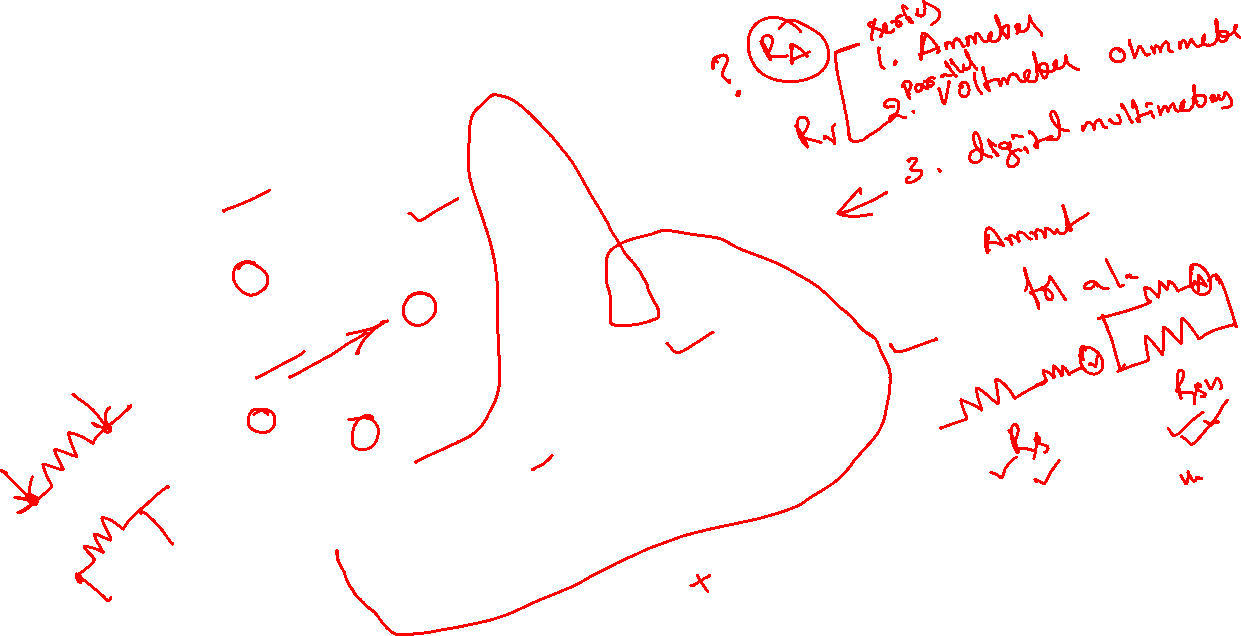 ? RA
series
1. Ammeter
Parallel
2. Voltmeter ohmmete
Rv
3. digital multimeters
Ammet
for al
A
V
Rsh
Rs